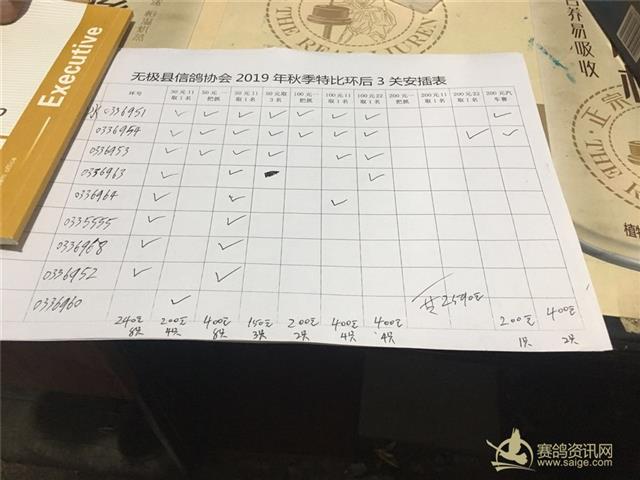 Executive
office
THE RE
养易吸收
正宗
无极县信鸽协会 2019 年秋季特比环后 3 关安插表
环号 30元11取1名 50元一把抓 50元11取1名 50元取3名 100元一把抓 100元11取1名 100元22取1名 200元一把抓 200元11取1名 200元22取1名 200元汽车赛
0336951 ✓ ✓ ✓ ✓ ✓ ✓ ✓ ✓
0336954 ✓ ✓ ✓ ✓ ✓ ✓ ✓ ✓ ✓
0336953 ✓ ✓ ✓ ✓ ✓ ✓
0336963 ✓ ✓ ✓
0336964 ✓ ✓ ✓
0335555 ✓ ✓
0336968 ✓ ✓
0336952 ✓ ✓
0336960 ✓
共2590元
240元 200元 400元 150元 200元 400元 400元 200元 400元
8只 4只 8只 3只 2只 4只 4只 1只 2只
植物
赛鸽资讯网
www.saige.com